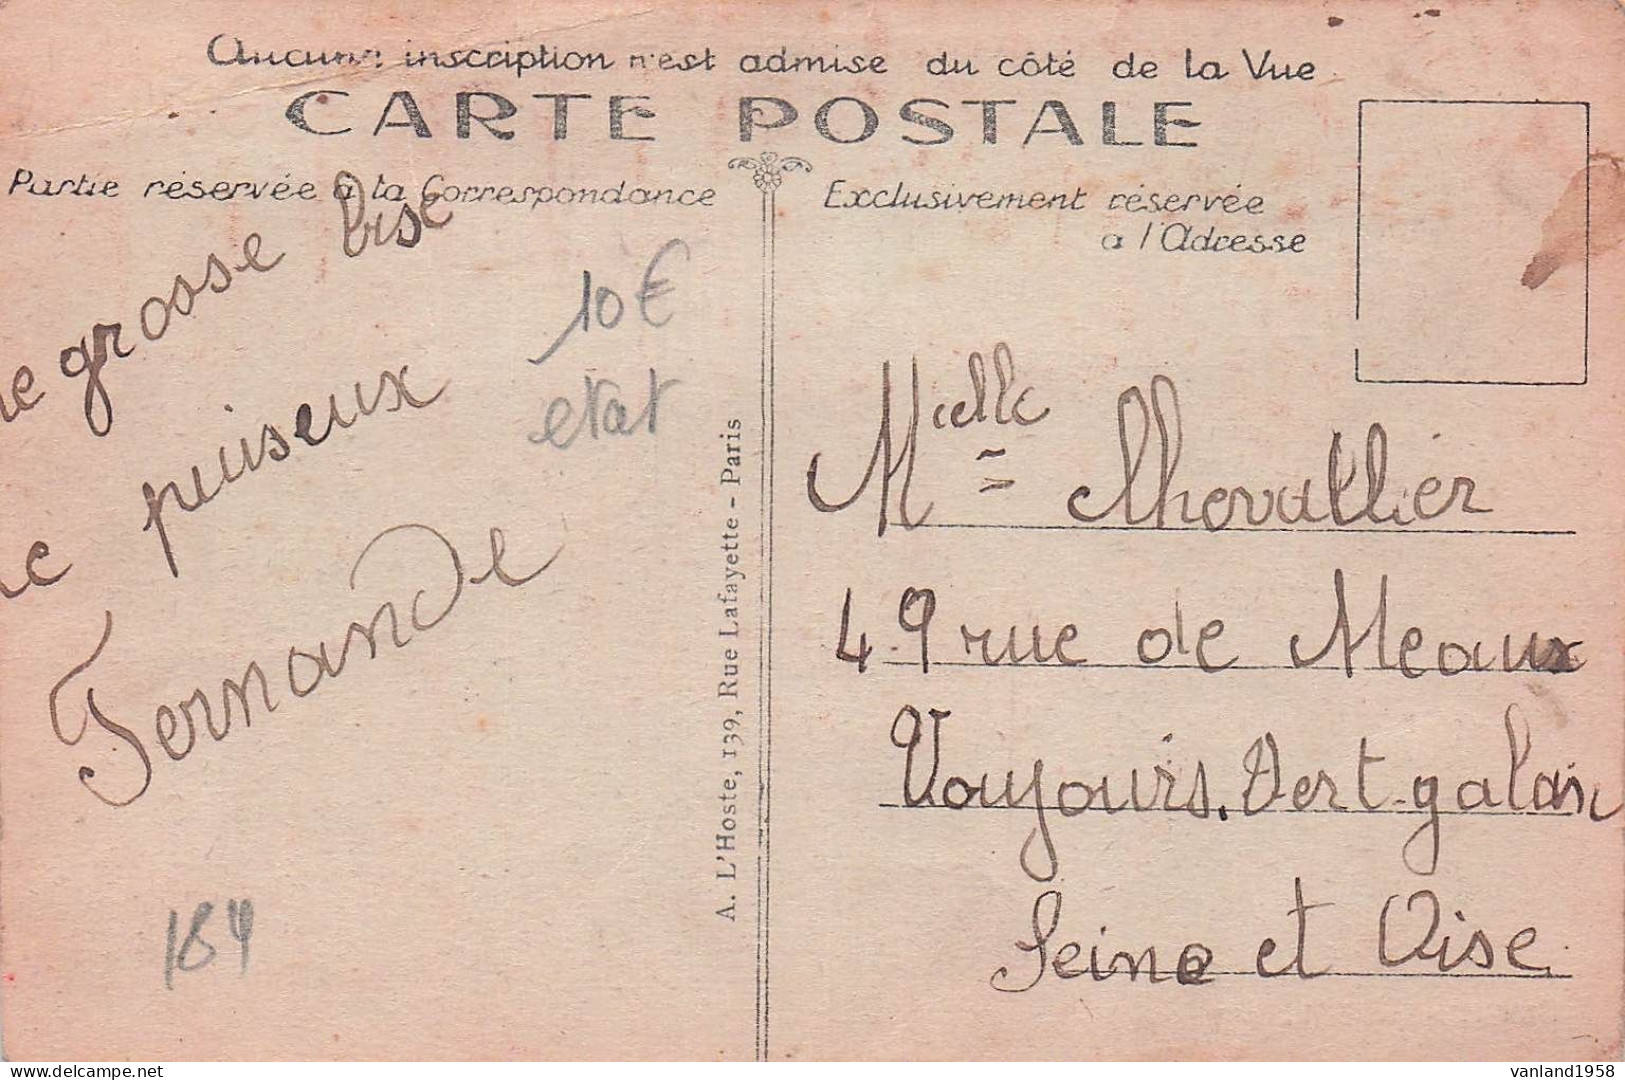 Aucune inscription n'est admise du côté de la Vue
CARTE POSTALE
Partie réservée à la Correspondance
Exclusivement réservée
a l'Adresse
grosse bise
puiseux
Fernande
10€
etat
184
A. L'Hoste, 139, Rue Lafayette - Paris
Mielle Chevallier
49 rue de Meaux
Voujours. Vert-galan
Seine et Oise
delcampe.net
vanland1958